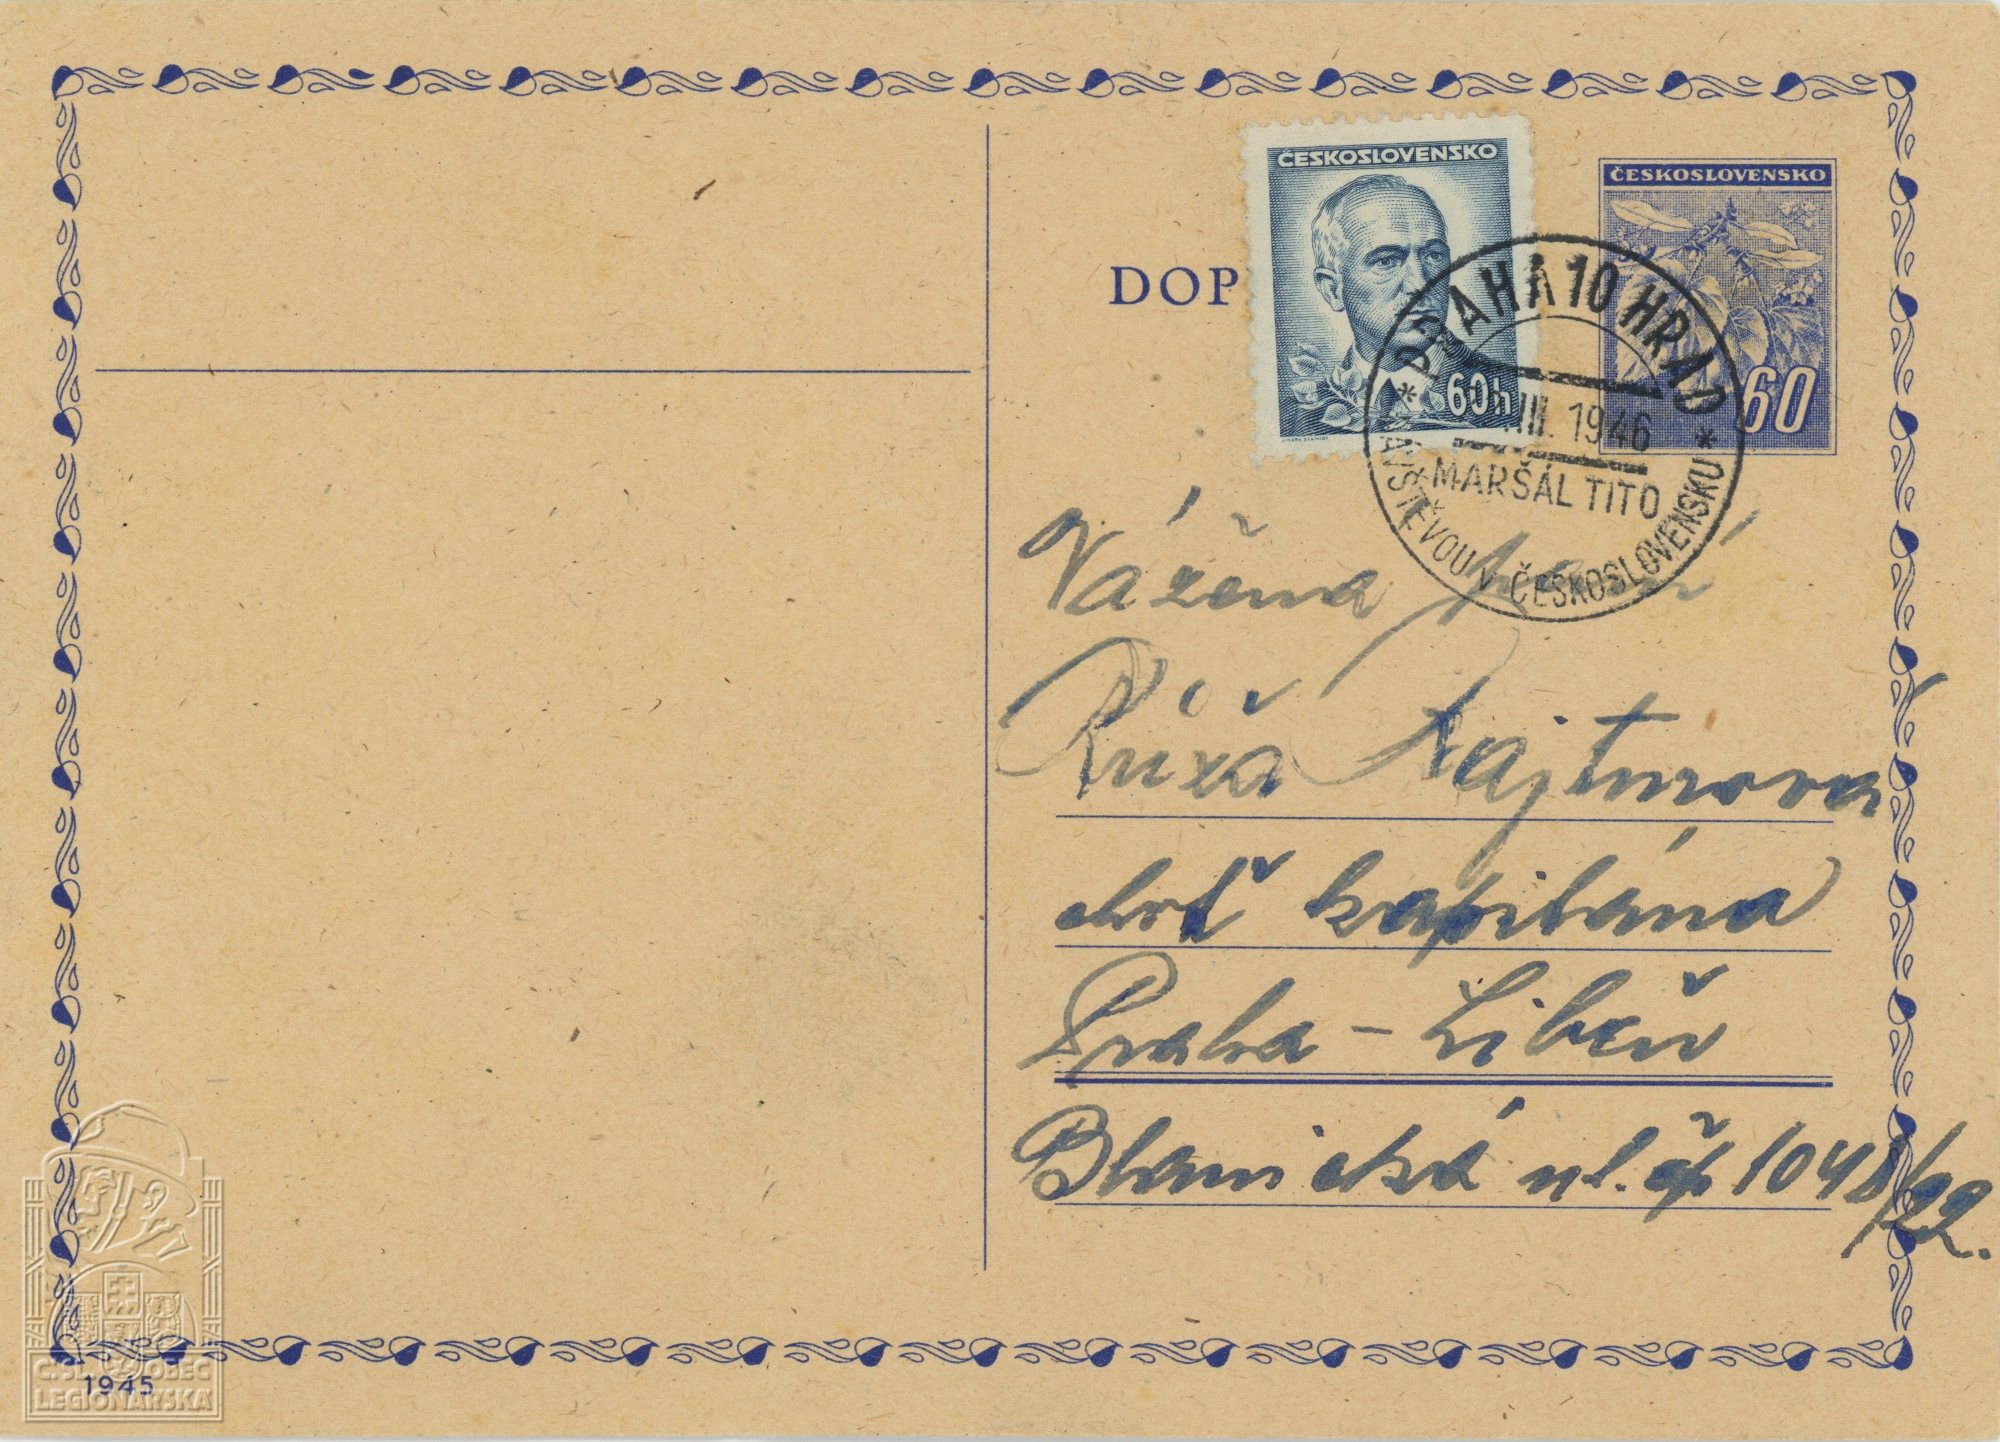 ČESKOSLOVENSKO
60h
ČESKOSLOVENSKO
60
DOP
PRAHA 10 HRAD
III. 1946
MARŠÁL TITO
NÁVŠTĚVOU V ČESKOSLOVENSKU
Vážená paní
Růža Rajtmrova
choť kapitána
Praha - Libeň
Blanická ul. čp 1048/22.
1945
Č.S. OBEC
LEGIONÁŘSKÁ